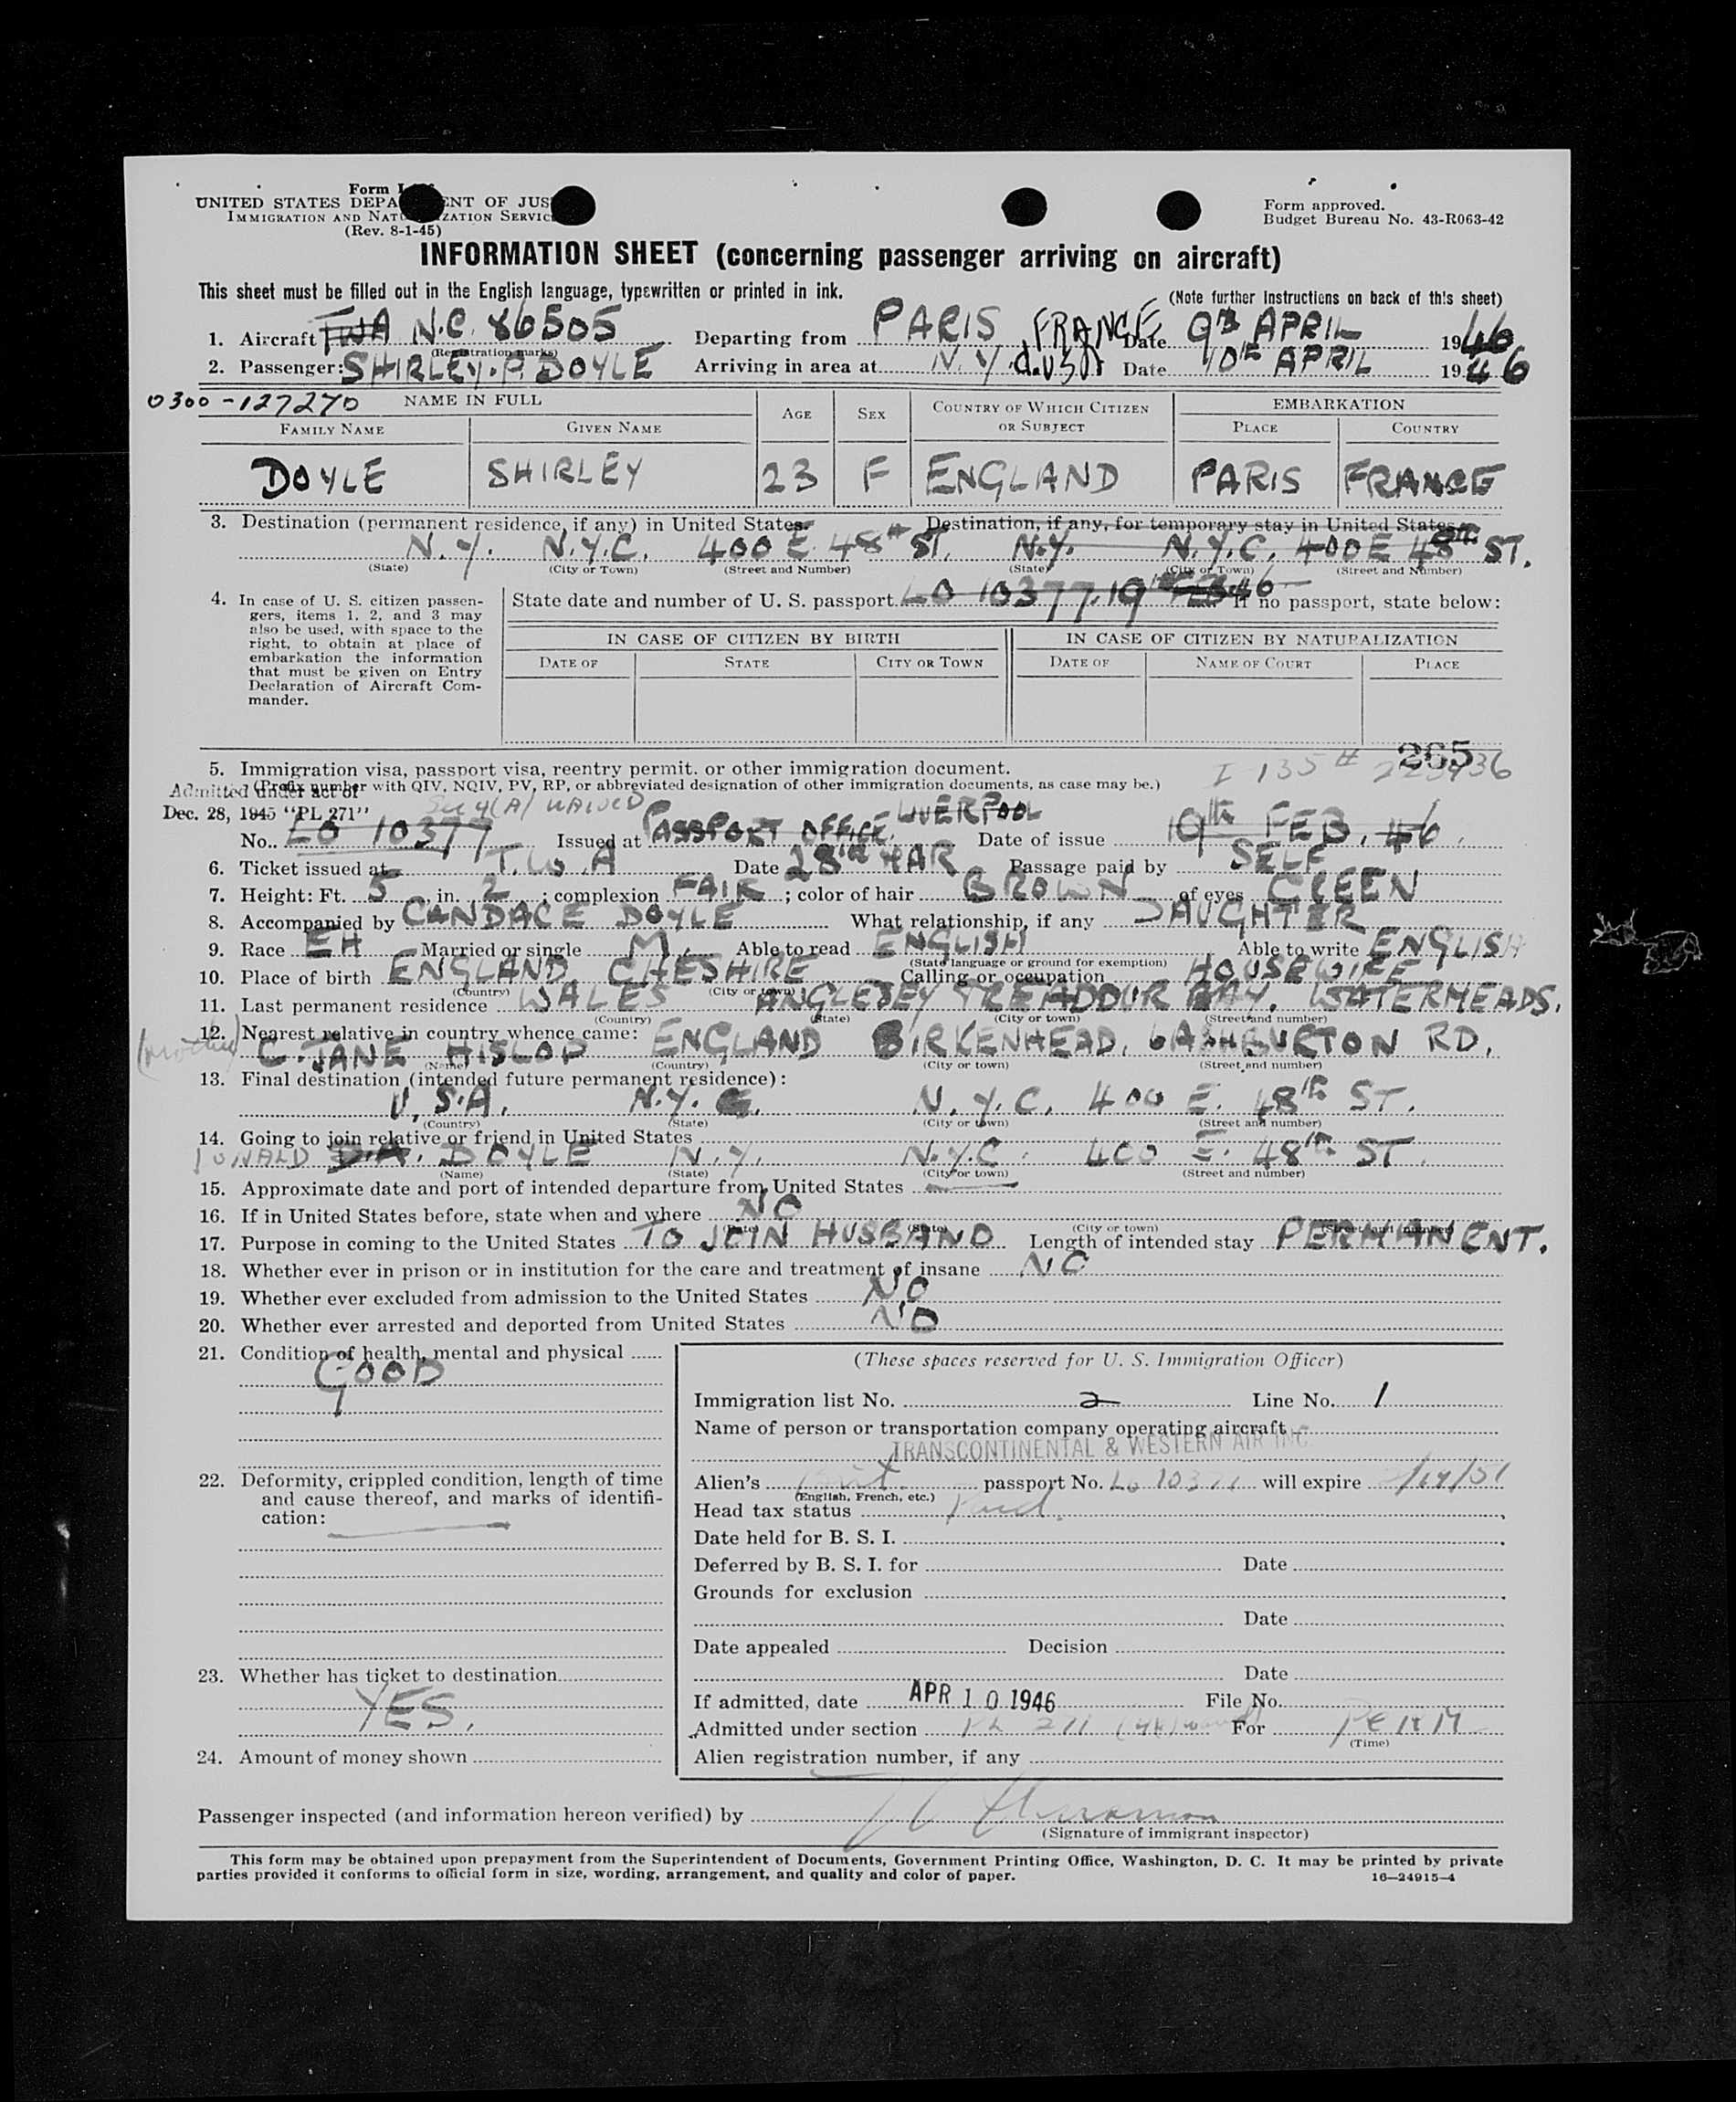 Form I
UNITED STATES DEPA ENT OF JUS
IMMIGRATION AND NATU ZATION SERVIC
(Rev. 8-1-45)
Form approved.
Budget Bureau No. 43-R063-42
INFORMATION SHEET (concerning passenger arriving on aircraft)
This sheet must be filled out in the English language, typewritten or printed in ink.
(Note further instructions on back of this sheet)
1. Aircraft TWA N.C. 86505 Departing from PARIS, FRANCE, Date 9TH APRIL 1946
(Registration marks)
2. Passenger: SHIRLEY. P. DOYLE Arriving in area at N.Y. Date 10TH APRIL 1946
0300-127270 NAME IN FULL AGE SEX COUNTRY OF WHICH CITIZEN OR SUBJECT EMBARKATION
FAMILY NAME GIVEN NAME PLACE COUNTRY
DOYLE SHIRLEY 23 F ENGLAND PARIS FRANCE
3. Destination (permanent residence, if any) in United States. Destination, if any, for temporary stay in United States
N.Y. N.Y.C. 400 E. 48TH ST. N.Y. N.Y.C. 400 E 48TH ST.
(State) (City or Town) (Street and Number) (State) (City or Town) (Street and Number)
4. In case of U. S. citizen passen-
gers, items 1, 2, and 3 may
also be used, with space to the
right, to obtain at place of
embarkation the information
that must be given on Entry
Declaration of Aircraft Com-
mander.
State date and number of U. S. passport LO 10377. 19TH FEB 46 If no passport, state below:
IN CASE OF CITIZEN BY BIRTH IN CASE OF CITIZEN BY NATURALIZATION
DATE OF STATE CITY OR TOWN DATE OF NAME OF COURT PLACE
265
5. Immigration visa, passport visa, reentry permit, or other immigration document.
(Prefix number with QIV, NQIV, PV, RP, or abbreviated designation of other immigration documents, as case may be.)
Admitted under act of
Dec. 28, 1945 "PL 271"
No. LO 10377 Issued at PASSPORT OFFICE, LIVERPOOL Date of issue 19th FEB. 46.
6. Ticket issued at T.W.A Date 28TH MAR Passage paid by SELF
7. Height: Ft. 5 in. 2 ; complexion FAIR ; color of hair BROWN of eyes GREEN
8. Accompanied by CANDACE DOYLE What relationship, if any DAUGHTER
9. Race EH Married or single M. Able to read ENGLISH Able to write ENGLISH
(State language or ground for exemption)
10. Place of birth ENGLAND CHESHIRE Calling or occupation HOUSEWIFE
(Country) (City or town)
11. Last permanent residence WALES ANGLESEY TREADDUR BAY. WATERMEADS.
(Country) (State) (City or town) (Street and number)
12. Nearest relative in country whence came:
(mother) C. JANE HISLOP ENGLAND BIRKENHEAD, 6 ASHBURTON RD.
(Name) (Country) (City or town) (Street and number)
13. Final destination (intended future permanent residence):
U.S.A. N.Y. N.Y.C. 400 E. 48th ST.
(Country) (State) (City or town) (Street and number)
14. Going to join relative or friend in United States
DONALD D.A. DOYLE N.Y. N.Y.C. 400 E. 48th ST.
(Name) (State) (City or town) (Street and number)
15. Approximate date and port of intended departure from United States
16. If in United States before, state when and where NO
(Date) (State) (City or town) (Street and number)
17. Purpose in coming to the United States TO JOIN HUSBAND Length of intended stay PERMANENT.
18. Whether ever in prison or in institution for the care and treatment of insane NO
19. Whether ever excluded from admission to the United States NO
20. Whether ever arrested and deported from United States NO
21. Condition of health, mental and physical
GOOD
22. Deformity, crippled condition, length of time
and cause thereof, and marks of identifi-
cation:
23. Whether has ticket to destination
YES.
24. Amount of money shown
(These spaces reserved for U. S. Immigration Officer)
Immigration list No. 2 Line No. 1
Name of person or transportation company operating aircraft
TRANSCONTINENTAL & WESTERN AIR INC
Alien's Brit. passport No. Lo 10377 will expire 2/19/51
(English, French, etc.)
Head tax status Paid
Date held for B. S. I.
Deferred by B. S. I. for Date
Grounds for exclusion
Date
Date appealed Decision
Date
If admitted, date APR 10 1946 File No.
Admitted under section PL 271 For PERM
(Time)
Alien registration number, if any
Passenger inspected (and information hereon verified) by
(Signature of immigrant inspector)
This form may be obtained upon prepayment from the Superintendent of Documents, Government Printing Office, Washington, D. C. It may be printed by private
parties provided it conforms to official form in size, wording, arrangement, and quality and color of paper.
16—24915-4